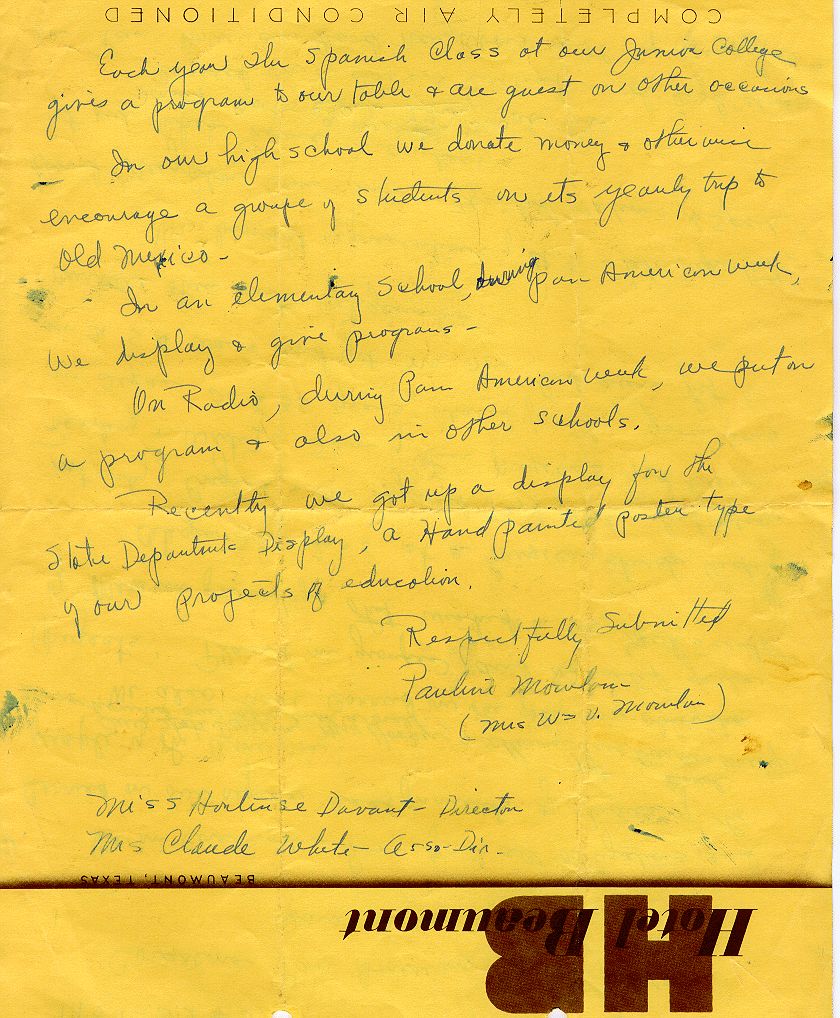 COMPLETELY AIR CONDITIONED
Each year the Spanish Class at our Junior College
gives a program to our table & are guest on other occasions
In our high school we donate money & otherwise
encourage a groupe of students on its yearly trip to
Old Mexico -
In an elementary School, during Pan American week,
we display & give programs -
On Radio, during Pan American week, we put on
a program & also in other schools.
Recently we got up a display for the
State Departments Display, a Hand painted poster type
of our projects of education.
Respectfully Submitted
Pauline
(Mrs Wm V.
Miss Hortense Davant - Director
Mrs Claude White - Asso-Dir.
BEAUMONT, TEXAS
Hotel Beaumont
HB